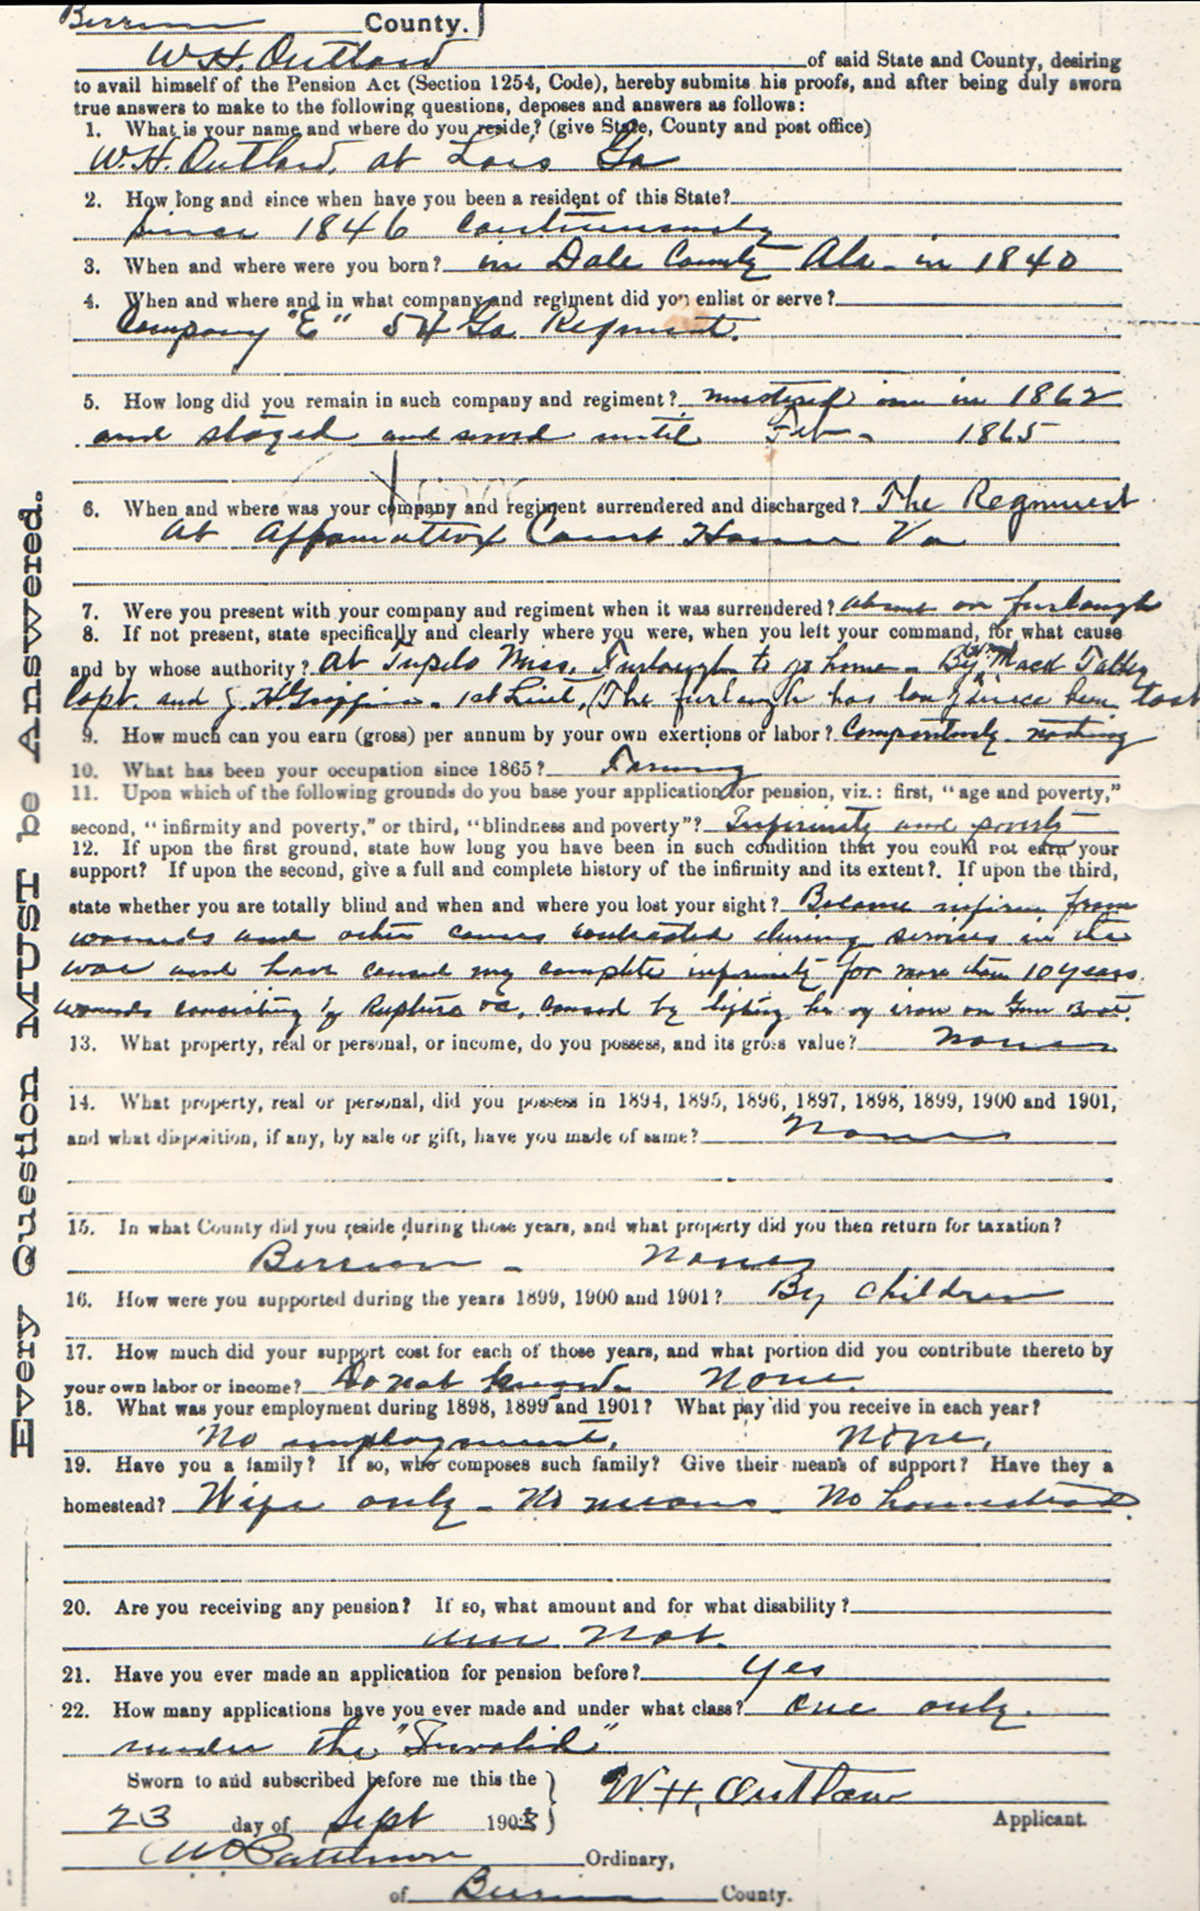 Berrien County.
W.H. Outlaw of said State and County, desiring
to avail himself of the Pension Act (Section 1254, Code), hereby submits his proofs, and after being duly sworn
true answers to make to the following questions, deposes and answers as follows:
1. What is your name and where do you reside? (give State, County and post office)
W.H. Outlaw, at Lois Ga
2. How long and since when have you been a resident of this State?
since 1846 continuously
3. When and where were you born? in Dale County Ala in 1840
4. When and where and in what company and regiment did you enlist or serve?
Company "E" 54 Ga Regment.
5. How long did you remain in such company and regiment? mustered in in 1862
and stayed and until Feb - 1865
6. When and where was your company and regiment surrendered and discharged? The Regment
At Appomattox Court House Va
7. Were you present with your company and regiment when it was surrendered? absent on furlough
8. If not present, state specifically and clearly where you were, when you left your command, for what cause
and by whose authority? At Tupelo Miss. Furlough to go home - By Mack Talley
Capt. and J.H. Griffin - 1st Liut. (The furlough has long since been lost
9. How much can you earn (gross) per annum by your own exertions or labor? Comparitively nothing
10. What has been your occupation since 1865? Farming
11. Upon which of the following grounds do you base your application for pension, viz.: first, "age and poverty,"
second, "infirmity and poverty," or third, "blindness and poverty"? Infirmity and poverty
12. If upon the first ground, state how long you have been in such condition that you could not earn your
support? If upon the second, give a full and complete history of the infirmity and its extent?. If upon the third,
state whether you are totally blind and when and where you lost your sight? Became infirm from
wounds and other causes contracted during services in the
war and have caused my complete infirmity for more than 10 years.
wounds consisting of Rupture &c, caused by lifting iron on Gun Boat.
13. What property, real or personal, or income, do you possess, and its gross value? None
14. What property, real or personal, did you possess in 1894, 1895, 1896, 1897, 1898, 1899, 1900 and 1901,
and what disposition, if any, by sale or gift, have you made of same? None
15. In what County did you reside during those years, and what property did you then return for taxation?
Berrien - None
16. How were you supported during the years 1899, 1900 and 1901? By Children
17. How much did your support cost for each of those years, and what portion did you contribute thereto by
your own labor or income? Do not None.
18. What was your employment during 1898, 1899 and 1901? What pay did you receive in each year?
No employment. None.
19. Have you a family? If so, who composes such family? Give their means of support? Have they a
homestead? Wife only - No means No homestead.
20. Are you receiving any pension? If so, what amount and for what disability?
am not.
21. Have you ever made an application for pension before? yes
22. How many applications have you ever made and under what class? one only.
under the "Invalid"
Sworn to and subscribed before me this the
23 day of Sept 1903
W.H. Outlaw
Applicant.
Ordinary,
of Berrien County.
Every Question MUST be Answered.